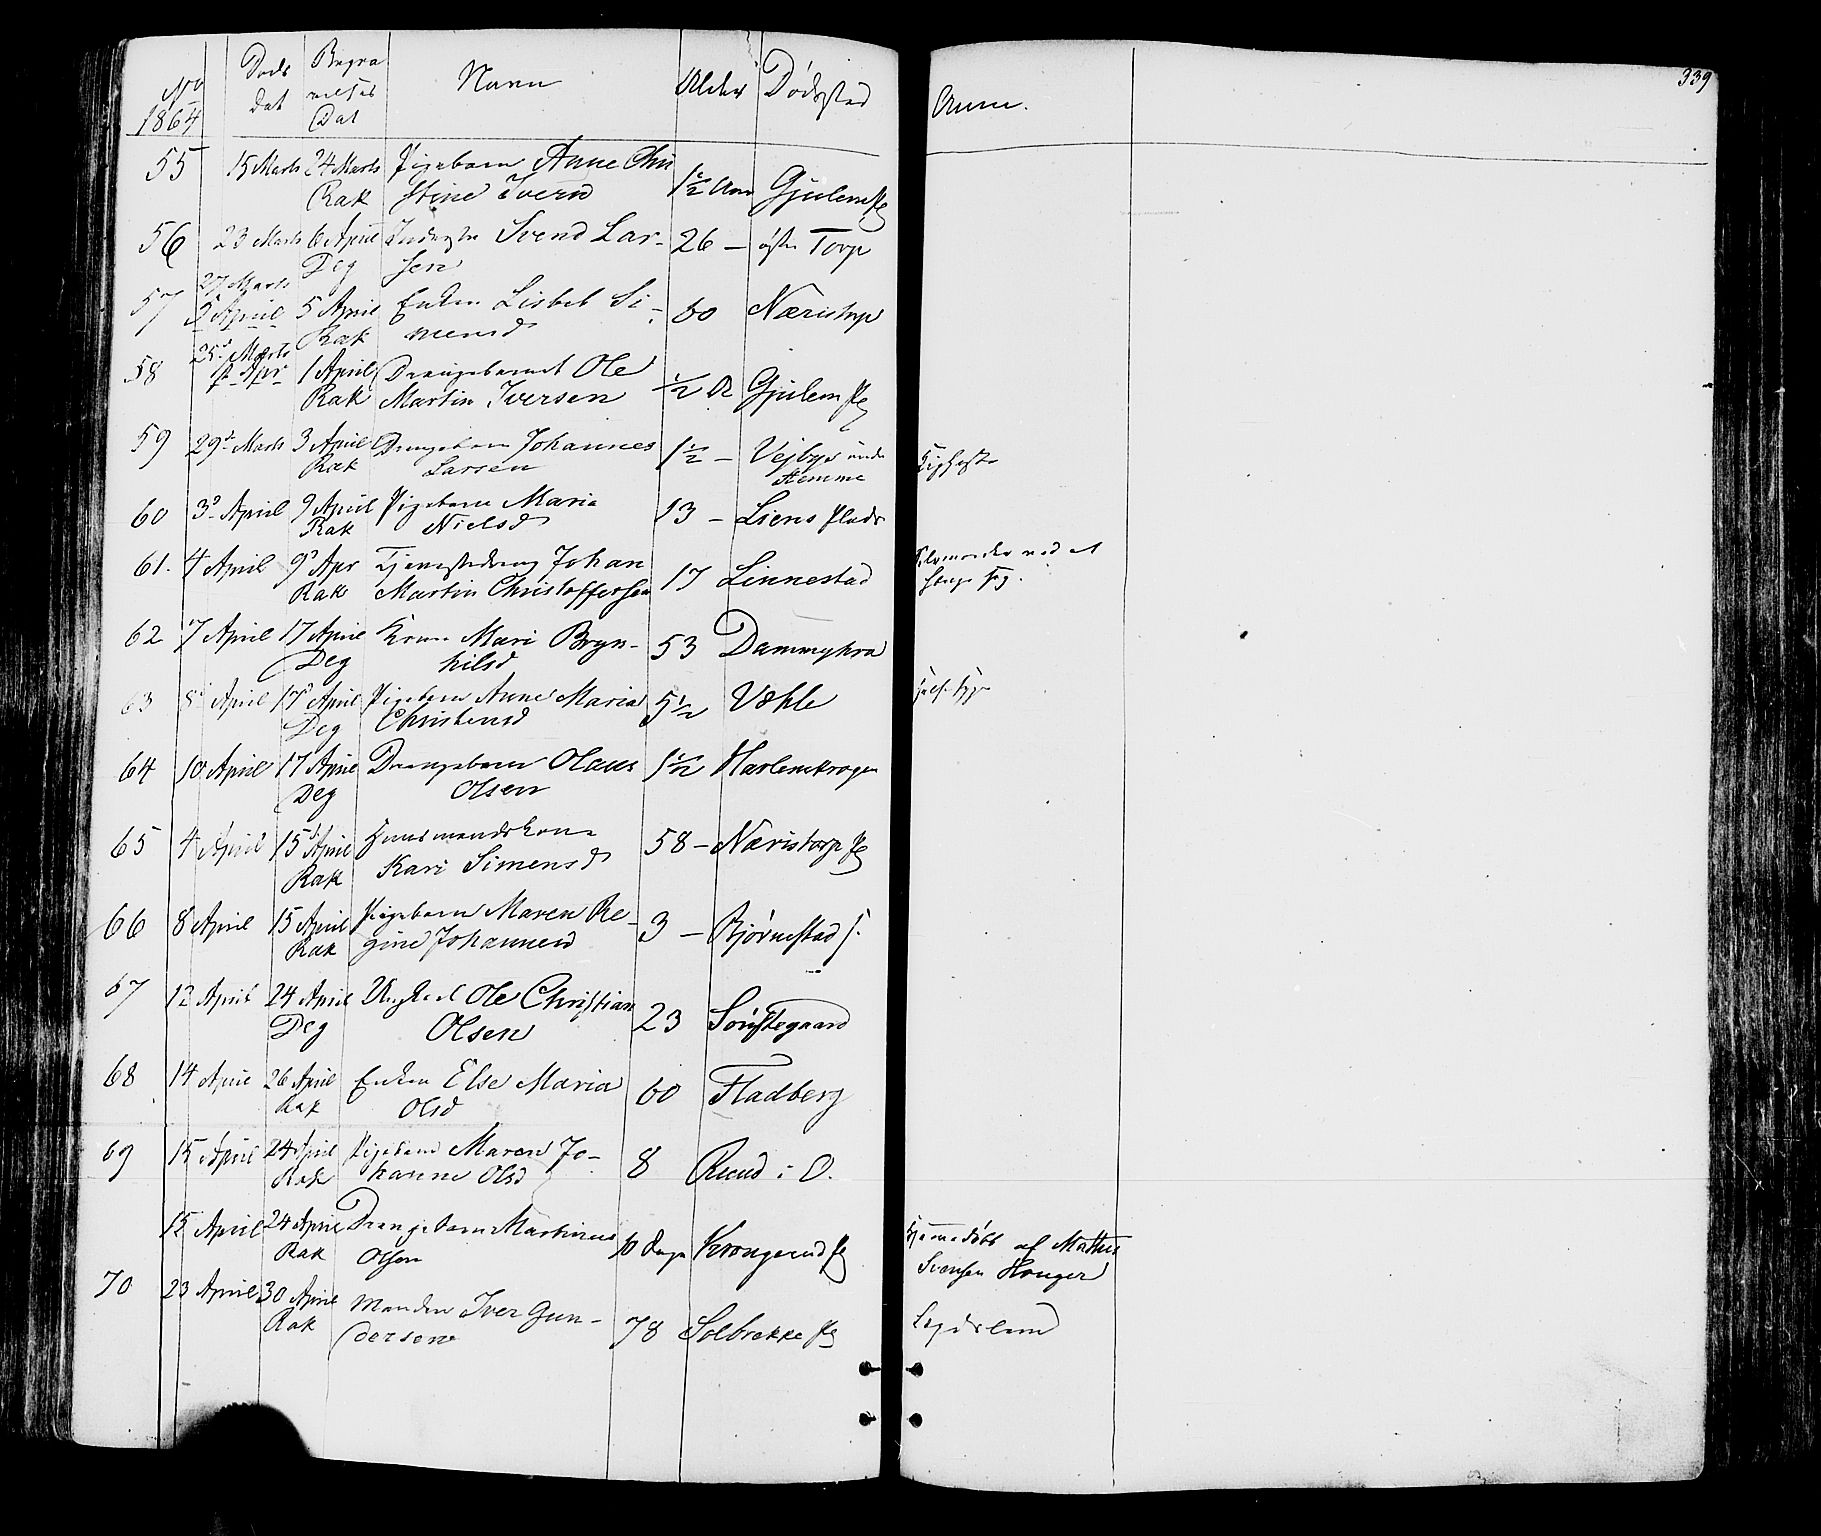 339
No 1864 Døds dat Begravelses Dat Navn Alder Dødsted Anm.
55 15 Marts 24 Marts Pigebarn Anne Chri 1½ Aar Gjulem
Rak stine Iversd
56 23 Marts 6 April Inderste Svend Lar- 26 – østre Torp
Deg sen
27 Marts
57 5 April 5 April Enken Lisbet Si- 60 Næristorp
Rak mensd
25d Marts
58 Apr 1 April Drengebarnet Ole ½ Gjulem
Rak Martin Iversen
59 29d Marts 3 April Drengebarn Johannes 1½ – Vejbye Kighoste
Rak Larsen
60 3d April 9 April Pigebarn Maria 13 – Liens Plads
Rak Nielsd
61. 4 April 9d Apr Tjenestedreng Johan 17 Linnestad
Rak Martin Christoffersen
62 7 April 17 April Kone Mari Bryn- 53 Dammyhra
Deg hilsd
63 8d April 17d April Pigebarn Anne Maria 5½ Væhle
Deg Christensd
64 10 April 17 April Drengebarn Olaus 1½ Harlemskrogen
Deg Olsen
65 4 April 15d April Huusmandskone 58 – Næristorp
Rak Kari Simensd
66 8 April 15 April Pigebarn Maren Re- 3 – Bjørnestad
Rak gine Johannesd
67 12 April 24 April Ungkarl Ole Christian 23
Deg Olsen
68 14 April 26 April Enken Else Maria 60 Fladberg
Rak Olsd
69 15 April 24 April Pigebarn Maren Jo- 8 Ruud i O.
Rak hanne Olsd
15 April 24 April Drengebarn Martinus 10 Dage hjemmedøbt af Mathis
Rak Olsen Svensen Houger
70 23 April 30 April Manden Iver Gun- 78 Solbrække Lægdslem
Rak dersen